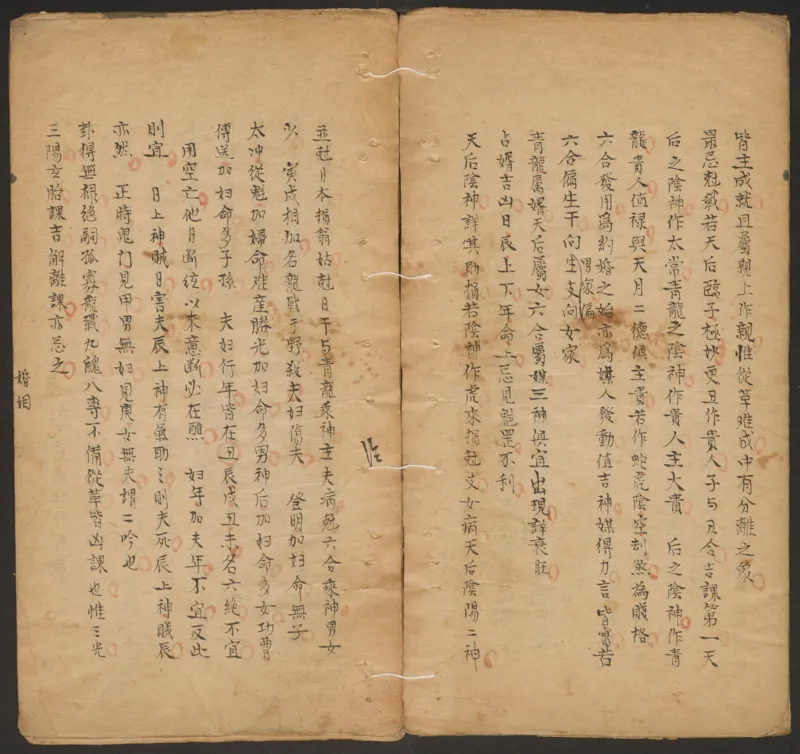 皆主成就且屬親上作親惟從革难成中有分離之象
最忌尅戰若天后臨子極妙更丑作貴人子与丑合吉課第一天
后之陰神作太常青龍之陰神作貴人主大貴 后之陰神作青
龍貴人值禄與天月二德俱主貴若作蛇虎陰空制煞為賤格
六合發用為約婚之始亦為媒人發動值吉神媒得力言皆實若
六合偏生干向男家偏生支向女家
青龍属婿天后屬女六合屬媒三神俱宜出現詳衰旺
占婿吉凶日辰上下年命上忌見魁罡不利
天后陰神詳其助損若陰神作虎來損尅丈女病天后陰陽二神
並尅日本損翁姑尅日干与青龍乘神主夫病尅六合乘神男女
少 寅戌相加名龍戰于野殺夫妇傷夫 登明加妇命無子
太冲從魁加婦命难産勝光加妇命多男神后加妇命多女功曹
傳送加妇命多子孫 夫妇行年皆在丑辰戌丑未名六絶不宜
用空亡他日断絃以來意断必在醮 妇年加夫年不宜反此
則宜 日上神賊日害夫辰上神有氣助之則夫灰辰上神賊辰
亦然 正時鬼门見甲男無妇見庚女無夫謂二吟也
卦得無禄絶嗣孤寡龍戰九醜八專不備從革皆凶課也惟三光
三陽玄胎課吉解離課亦忌之
婚姻